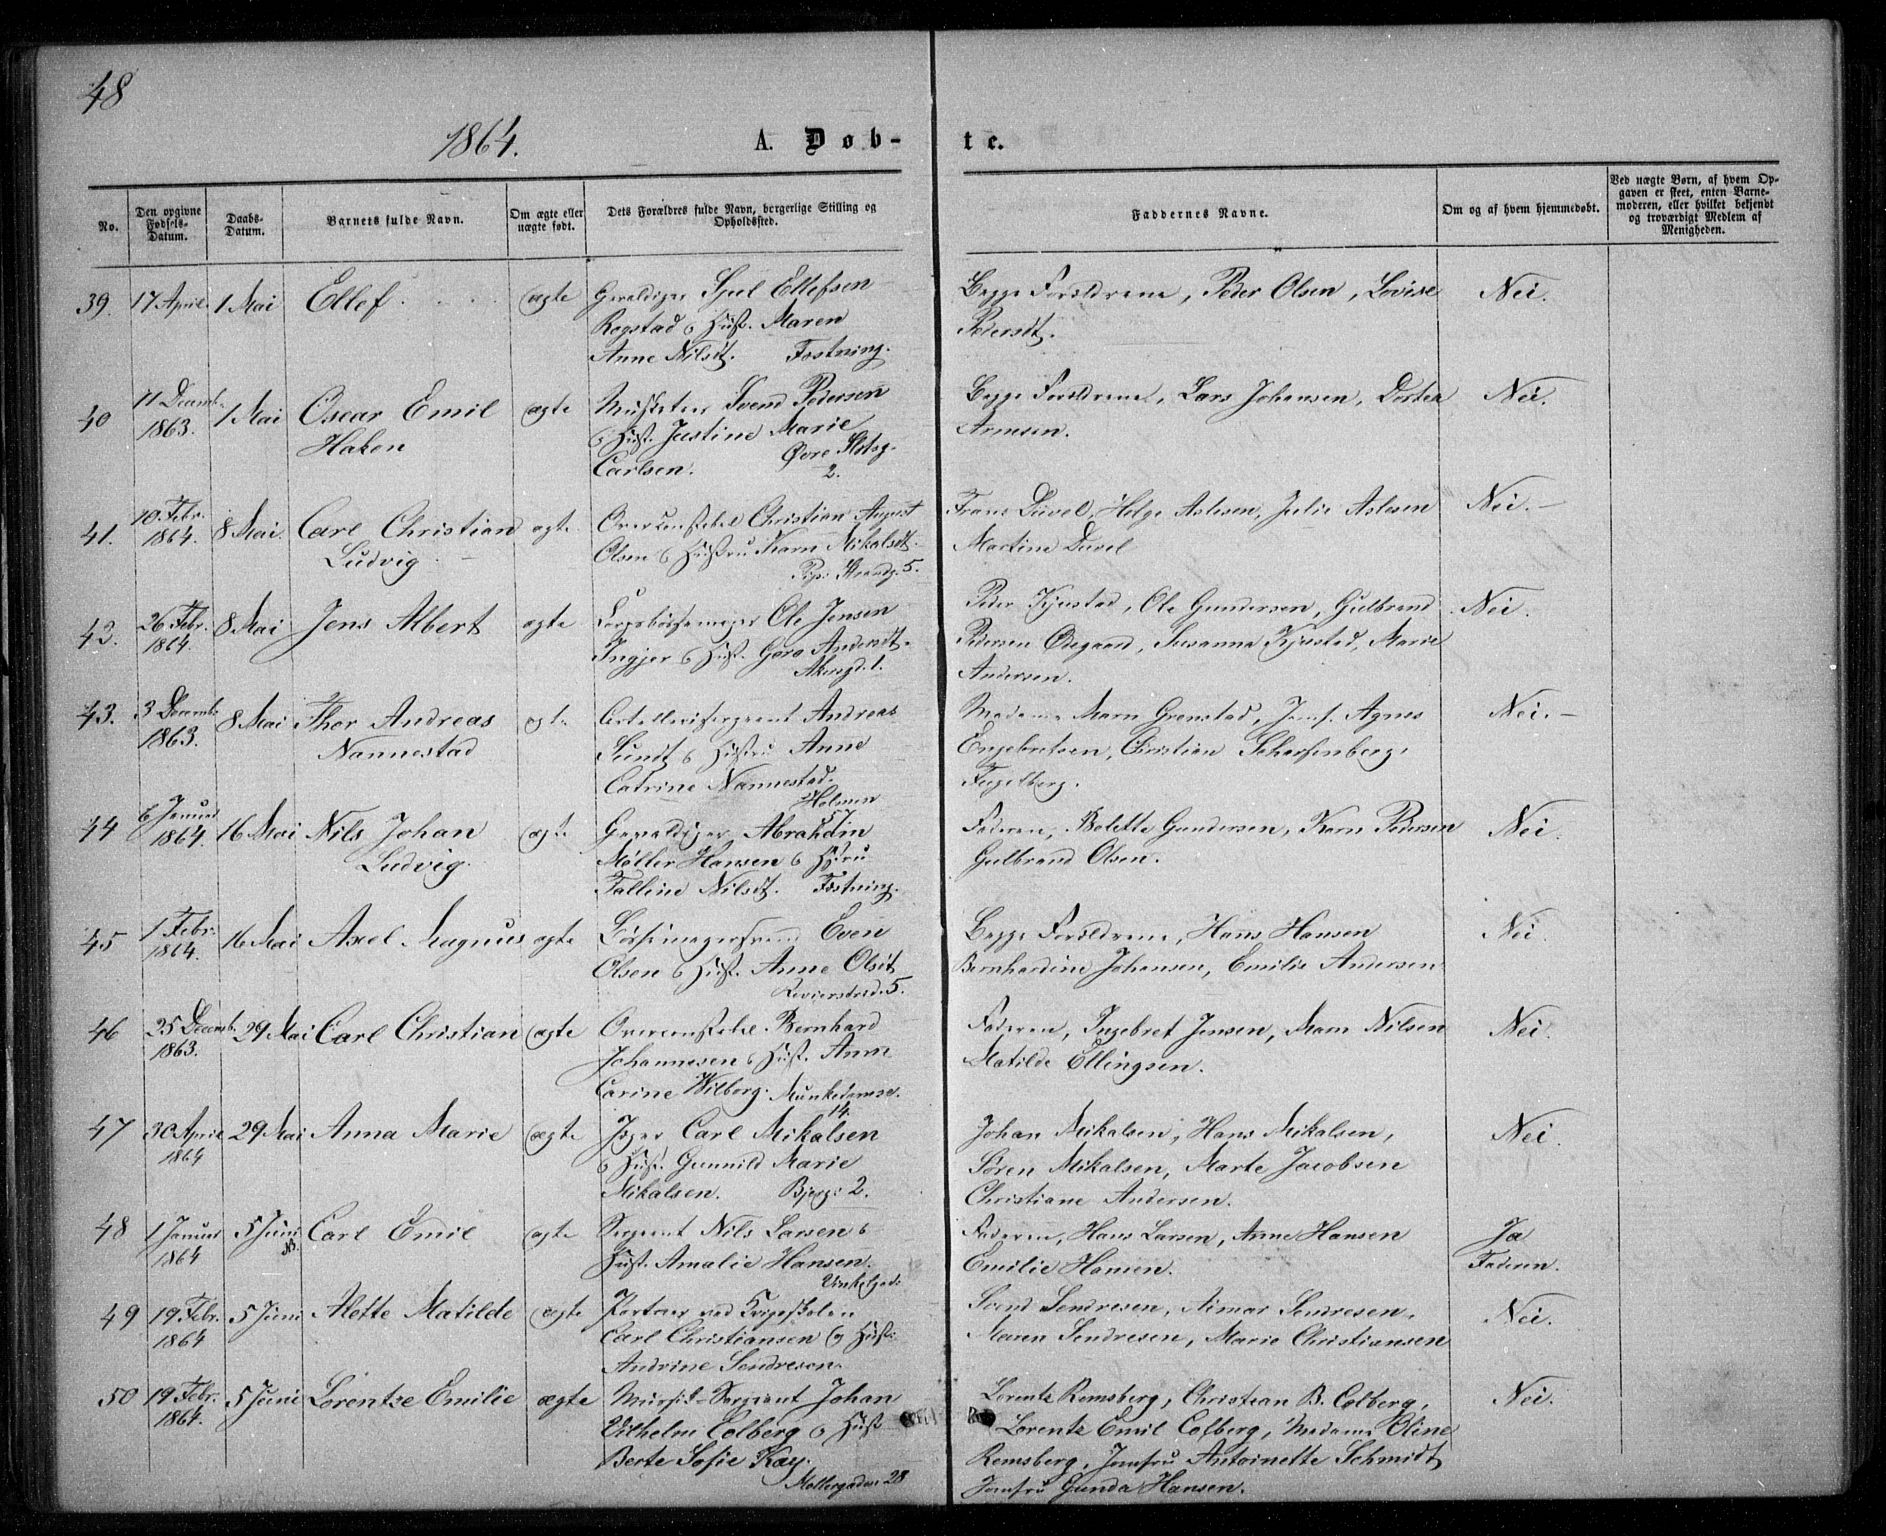 48
1864.
A. Døb-
te.
No.
Den opgivne Fødsels-Datum.
Daabs-Datum.
Barnets fulde Navn.
Om ægte eller uægte født.
Dets Forældres fulde Navn, borgerlige Stilling og Opholdssted.
Faddernes Navne.
Om og af hvem hjemmedøbt.
Ved uægte Børn, af hvem Opgaven er skeet, enten Barnemoderen, eller hvilket bekjendt og troværdigt Medlem af Menigheden.
39. 17 April 1 Mai Ellef ægte Geraldiger Ellefsen Begge Forældrene, Peder Olsen, Lovise Nei.
Rogstad o Hust. Maren Pedersdt.
Anne Nilsdt. Fæstning.
40 11 Decemb. 1 Mai Oscar Emil ægte Musketer Svend Pedersen Begge Forældrene, Lars Johansen, Dortea Nei.
1863. Haken o Hust. Justine Marie
Carlsen. Øvre Slotsg.
2.
41. 10 Febr. 8 Mai. Carl Christian ægte Christian August Frans Duvel, Helge Aslesen, Julie Aslesen Nei.
1864. Ludvig Olsen o Hustru Karn Mikalsdt. Martine Duvel
5.
42. 26 Febr. 8 Mai Jens Albert ægte Ole Jensen Peder Kjustad, Ole Gundersen, Gulbrand Nei.
1864. Ingjer o Hust. Andersdt. Pedersen Ødegaard, Susanna Kjustad, Marie
Akersgd. 1. Andersen.
43. 3 Decemb. 8 Mai Thor Andreas ægte Artillerisergeant Andreas Madame Marn Grenstad, Jomf. Agnes Nei.
1863. Nannestad Sundt o Hustru Anne Engebretsen, Christian Scharfenberg,
Catrine Nannestad. Fugelberg.
Holmen
44 6 Januar 16 Mai Nils Johan ægte Geraldiger Abraham Faderen, Bolette Gundersen, Karn Pedersen Nei.
1864. Ludvig. Møller Hansen o Hstru Gulbrand Olsen.
Talline Nilsdt. Fæstning.
45 1 Febr. 16 Mai Axel Magnus ægte Even Begge Forældrene, Hans Hansen Nei.
1864. Olsen o Hust. Anne Olsdt Bernhardine Johansen, Emilie Andersen
Revierstrd. 5.
46 25 Decemb. 29 Mai Carl Christian ægte Bernhard Faderen, Ingebret Jensen, Marn Nilsen Nei.
1863. Johannesen o Hust. Anne Matilde Ellingsen.
Carine Wilberg. Munkedamsv.
14.
47 30 April 29 Mai Anna Marie ægte Jæger Carl Mikalsen Johan Mikalsen, Hans Mikalsen, Nei.
1864 o Hust. Gunnild Marie Søren Mikalsen, Marte Jacobsen
Mikalsen. Bjerg: 2. Christiane Andersen.
48 1 Januar 5 Juni Carl Emil ægte Sergeant Nils Larsen o Faderen, Hans Larsen, Anne Hansen Ja
1864 Hust. Amalie Hansen. Emilie Hansen. Faderen.
Vinkelgad:
49 19 Febr. 5 Juni Alette Matilde ægte Portner ved Krigsskolen Svend Sendresen, Aimar Sendresen, Nei.
1864 Carl Christiansen og Hust: Maren Sendresen, Marie Christiansen
Andrine Sendresen.
50 19 Febr. 5 Juni Lorentze Emilie ægte Musik-Sergeant Johan Lorentz Remsberg, Christian B. Colberg, Nei.
1864. Vilhelm Colberg o Hust Lorentz Emil Colberg, Madame Oline
Berte Sofie Kay. Remsberg, Jomfru Antoinette Schmidt
Møllergaden 28 Jomfru Gunda Hansen.